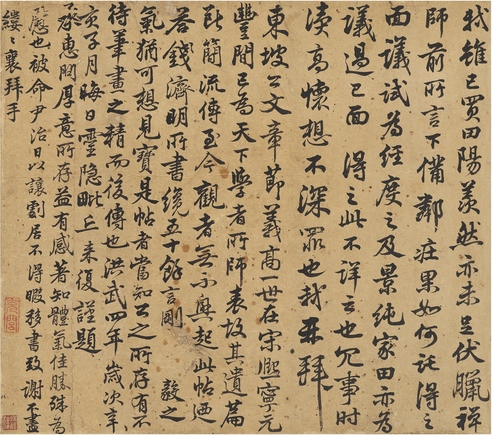 軾雖已買田陽羨然亦未足伏臘禪
師前所言下備鄰莊果如何託得之
面議試為經度之及景純家田亦為
議過已面得之此不詳云也冗事時
瀆高懷想不深罪也軾再拜
東坡公文章節義高一世在宋熙寧元
豐間已為天下學者所師表故其遺篇
斷簡流傳至今觀者無不興起此帖迺
答錢濟明所書纔五十餘言剛毅之
氣猶可想見寶是帖者當知公之所存有不
待筆畫之精而後傳也洪武四年歲次辛
亥子月晦日靈隱比丘來復謹題
惠問厚意所存益有感著知體氣佳勝殊為
慰也被命尹治日以讓劇居不得暇移書致謝不盡
縷縷襄拜手